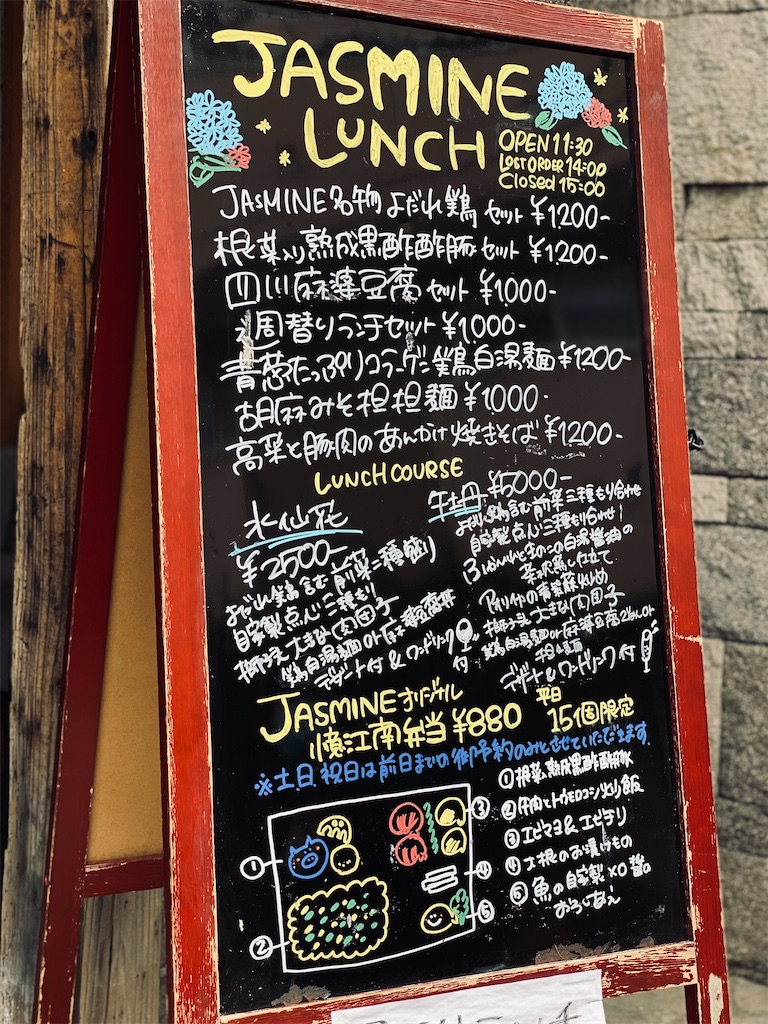 JASMINE
LUNCH
OPEN 11:30
LOST ORDER 14:00
Closed 15:00
JASMINE名物よだれ鶏セット ¥1200-
根菜入り熟成黒酢酢豚セット ¥1200-
四川麻婆豆腐セット ¥1,000-
週替りランチセット ¥1,000-
青葱たっぷりコラーゲン鶏白湯麺 ¥1200-
胡麻みそ担担麺 ¥1000-
高菜と豚肉のあんかけ焼きそば ¥1200-
LUNCH COURSE
水仙花
¥2500-
よだれ鶏含む前菜三種盛り
自家製点心三種もり
獅子頭 大きな肉団子
鶏白湯麺or麻婆豆腐丼
デザート付 & ワンドリンク付
牡丹 ¥5000-
よだれ鶏含む前菜三種もり合わせ
自家製点心三種もり合わせ!
獅子頭 大きな肉団子
デザート & ワンドリンク付
JASMINEオリジナル
憶江南弁当 ¥880 平日15個限定
※土日祝日は前日までの御予約のみとさせていただきます
①根菜熟成黒酢酢豚
②牛肉とトウモロコシ炒り飯
③エビマヨ&エビチリ
④大根のお漬けもの
⑤魚の自家製XO醤の
おろしあえ
① ② ③ ④ ⑤